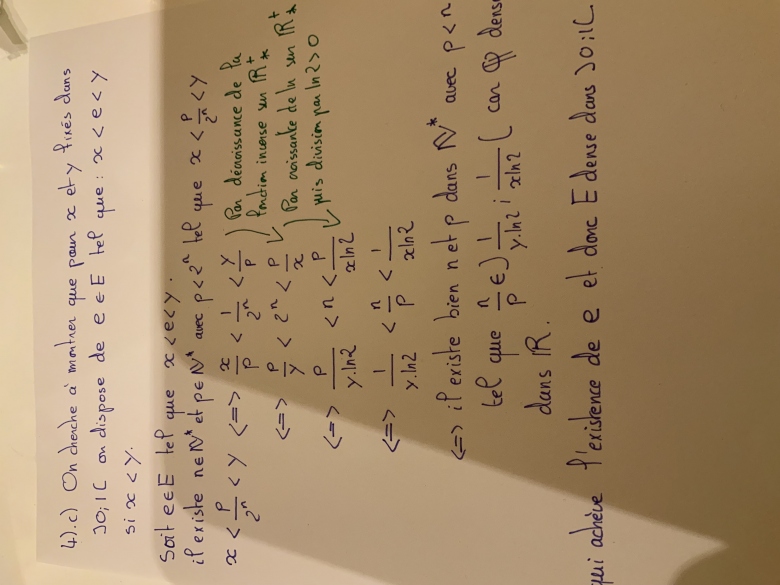 4).c) On cherche à montrer que pour x et y fixés dans
]0;1[ on dispose de e ∈ E tel que : x < e < y
si x < y.
Soit e ∈ E tel que x < e < y.
il existe n ∈ N* et p ∈ N* avec p < 2^n tel que x < p/2^n < y
x < p/2^n < y <=> x/p < 1/2^n < y/p
<=> p/y < 2^n < p/x
<=> p/(y.ln2) < n < p/(x ln2)
<=> 1/(y.ln2) < n/p < 1/(x ln2)
) Par décroissance de la
fonction inverse sur R*+
) Par croissante de ln sur R*+
puis division par ln2 > 0
<=> il existe bien n et p dans N* avec p < n
tel que n/p ∈ ] 1/(y.ln2) ; 1/(x ln2) [ car Q dense
dans R.
qui achève l'existence de e et donc E dense dans ]0;1[